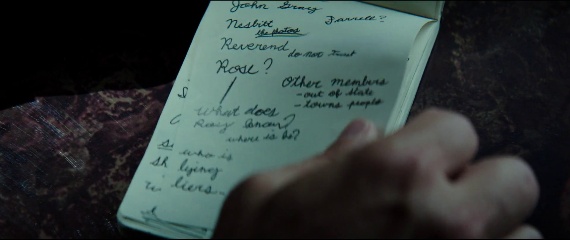 John
Nesbitt the pastors Farrell?
Reverend do not trust
Rose?
Other members
-out of state
-towns people
what does
where is he?
who is
lying
liers-